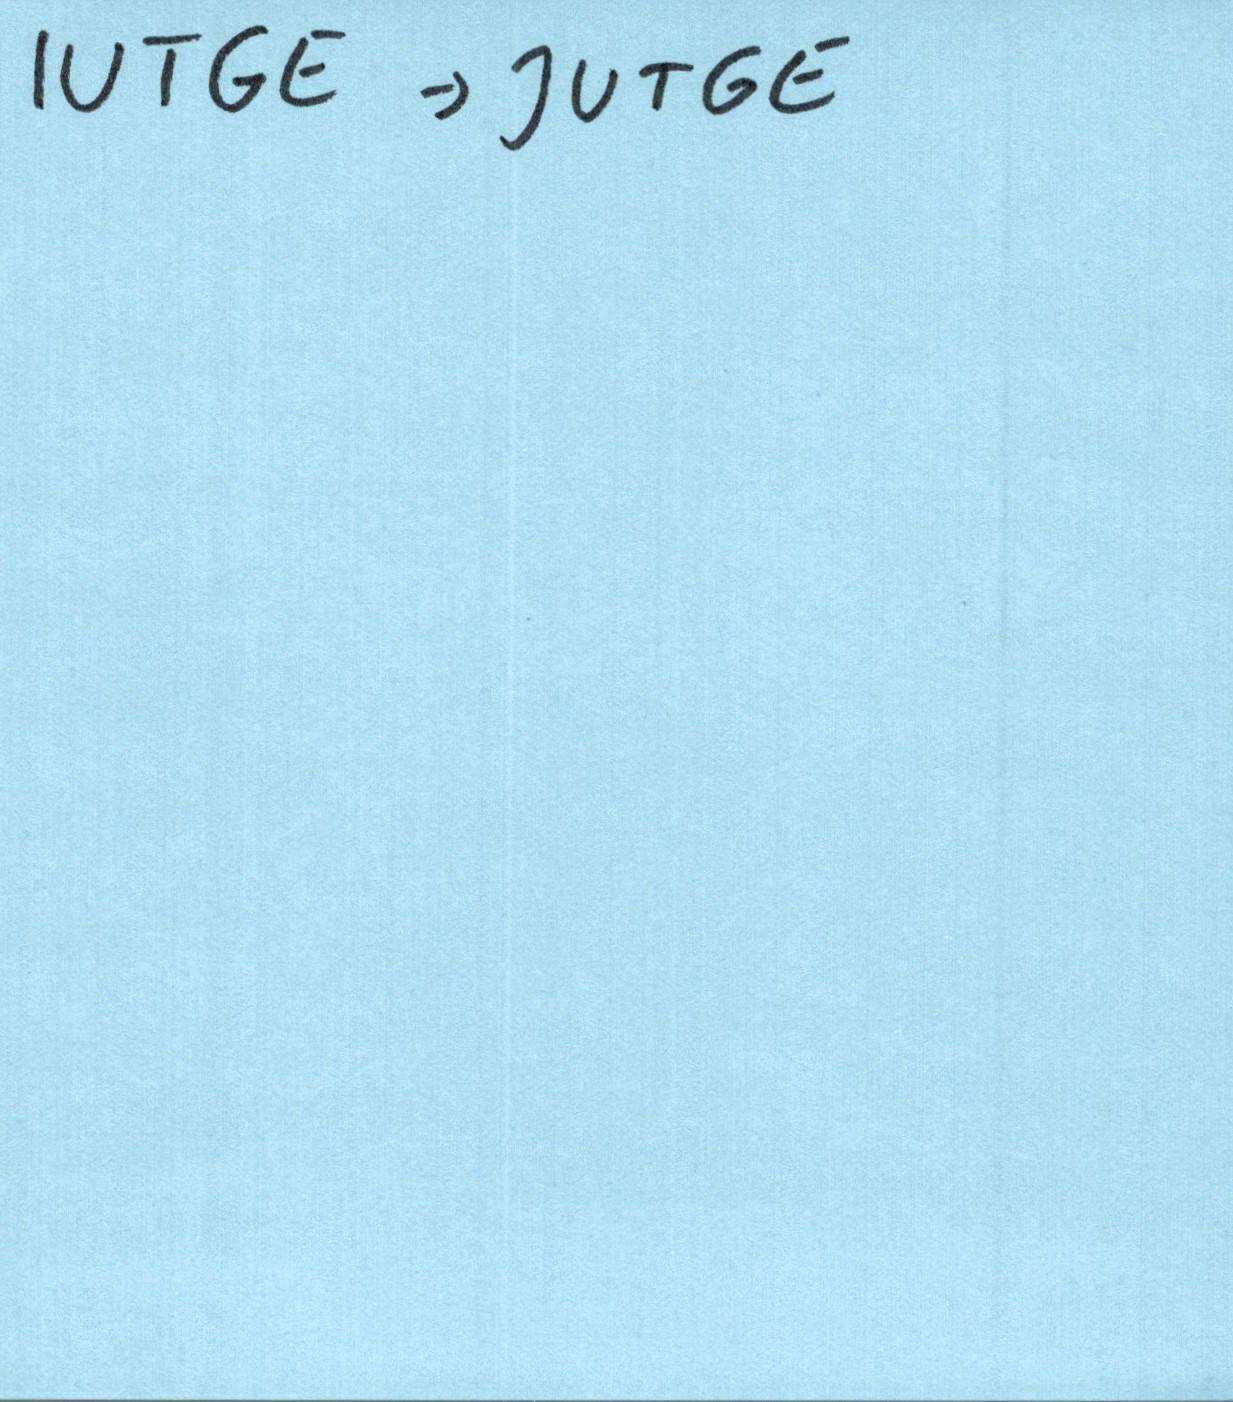 IUTGE → JUTGE